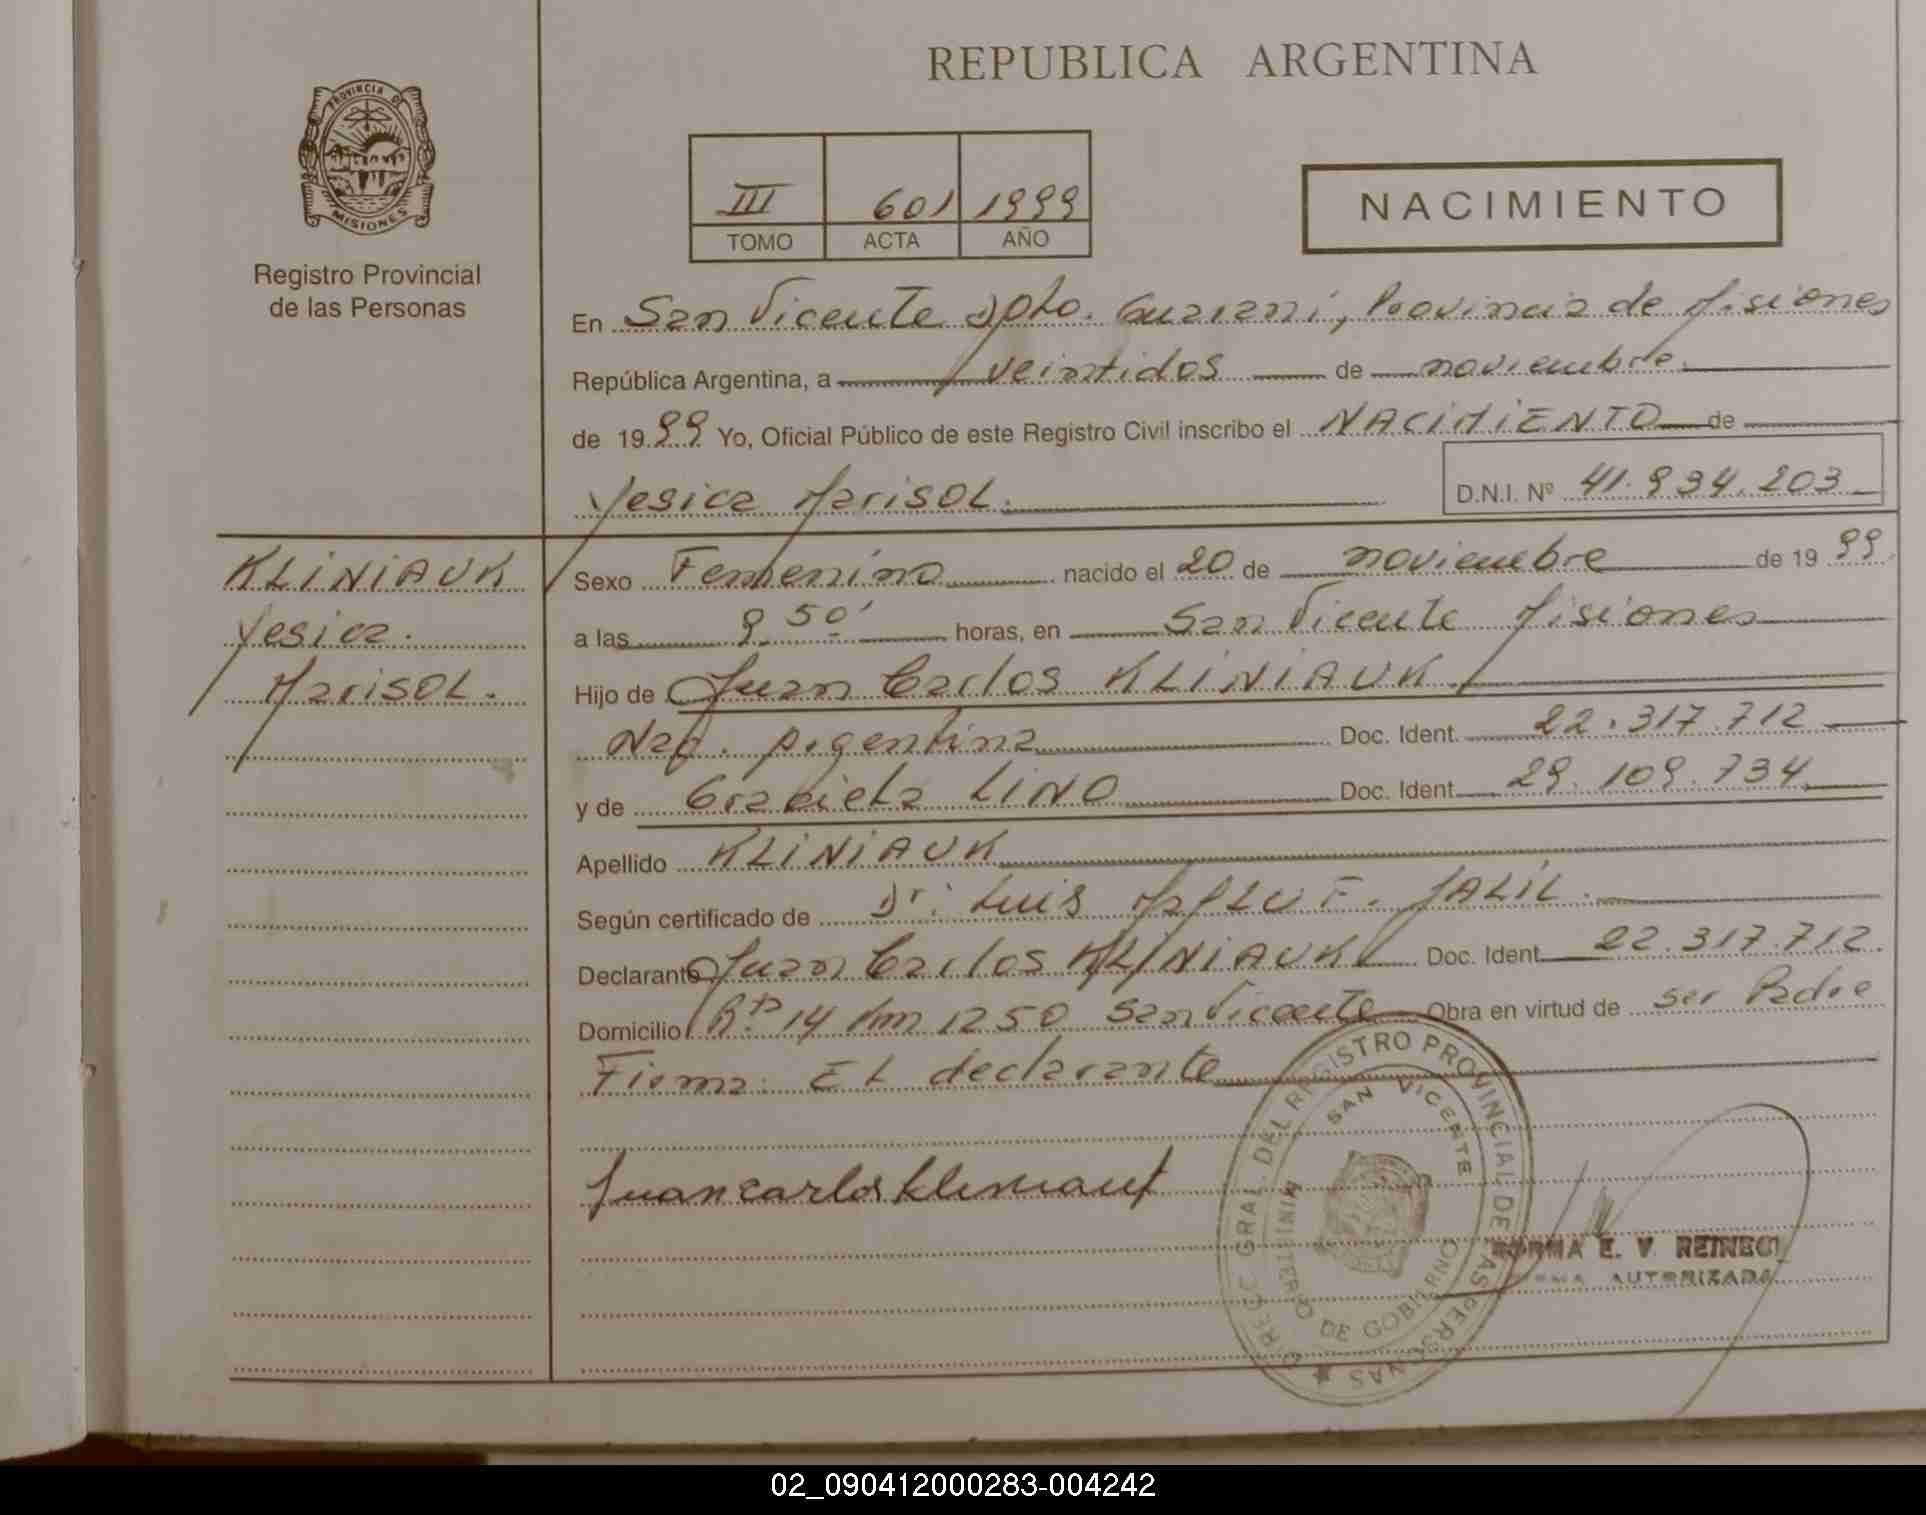 REPUBLICA ARGENTINA
PROVINCIA DE
MISIONES
Registro Provincial
de las Personas
III 601 1999
TOMO ACTA AÑO
NACIMIENTO
En San Vicente Dpto. Guarani, Provincia de Misiones
República Argentina, a veintidos de noviembre
de 1999 Yo, Oficial Público de este Registro Civil inscribo el NACIMIENTO de
Yesica Marisol. D.N.I. Nº 41.934.203
KLINIAUK
Yesica.
Marisol.
Sexo Femenino nacido el 20 de noviembre de 1999.
a las 9 50' horas, en San Vicente Misiones
Hijo de Juan Carlos KLINIAUK
Nac. Argentina Doc. Ident. 22.317.712
y de Graciela LINO Doc. Ident. 29.109.734
Apellido KLINIAUK
Según certificado de Dr: Luis F. JALIL.
Declarante Juan Carlos KLINIAUK Doc. Ident. 22.317.712.
Domicilio 14 Km 1250 San Vicente Obra en virtud de ser Padre
Firma: El declarante
Juan carlos
DIRECC GRAL. DEL REGISTRO PROVINCIAL DE LAS PERSONAS
SAN VICENTE
MINISTERIO DE GOBIERNO
NORMA E. V. REINECK
FIRMA AUTORIZADA
02_090412000283-004242